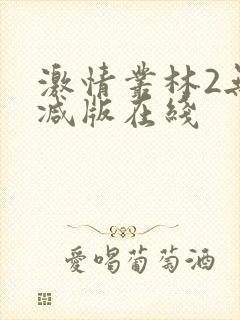 激情叢林2無
减版在綫
愛喝葡萄酒